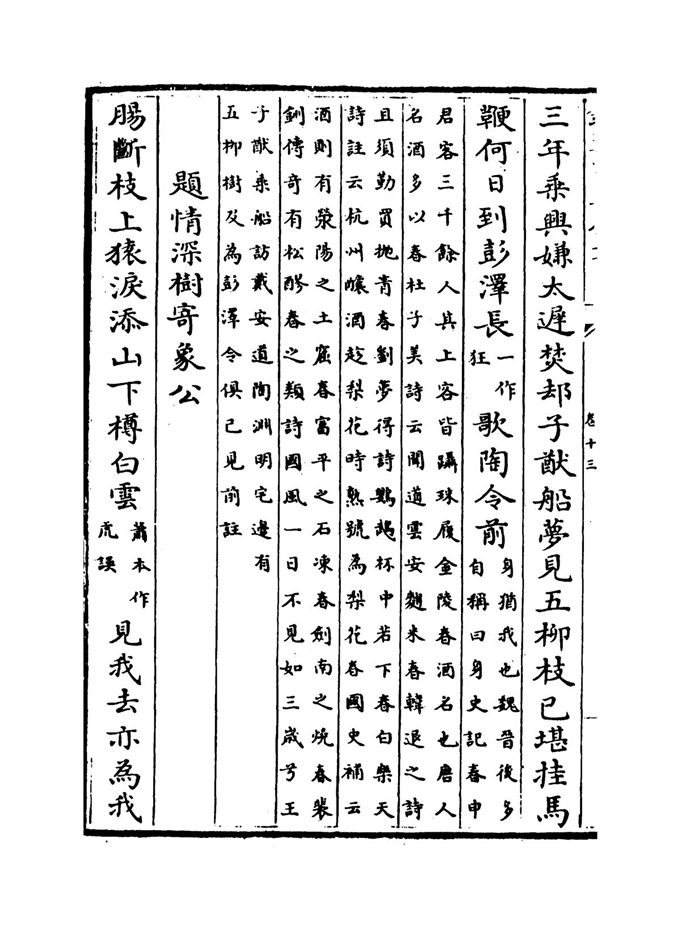 三年乘興嫌太遲焚却子猷船夢見五柳枝已堪挂馬
鞭何日到彭澤長
一作
狂
歌陶令前
身猶我也魏晉後多
自稱曰身史記春申
君客三千餘人其上客皆躡珠履金陵春酒名也唐人
名酒多以春杜子美詩云聞道雲安麯米春韓退之詩
且須勤買抛青春劉夢得詩鸚鵡杯中若下春白樂天
詩註云杭州釀酒趁梨花時熟號為梨花春國史補云
酒則有滎陽之土窟春富平之石凍春劍南之燒春裴
鉶傳奇有松醪春之類詩國風一日不見如三歲兮王
子猷乘船訪戴安道陶淵明宅邊有
五柳樹及為彭澤令俱已見前註
題情深樹寄象公
腸斷枝上猿淚添山下樽白雲
蕭本作
虎誤
見我去亦為我
卷十三